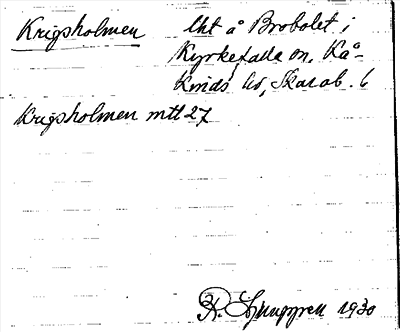 Krigsholmen
Lht å Brobolet i
Kyrkefalla sn, Kå-
kinds hd, Skarab. l
Krigsholmen mtt 27
R. Ljunggren 1930